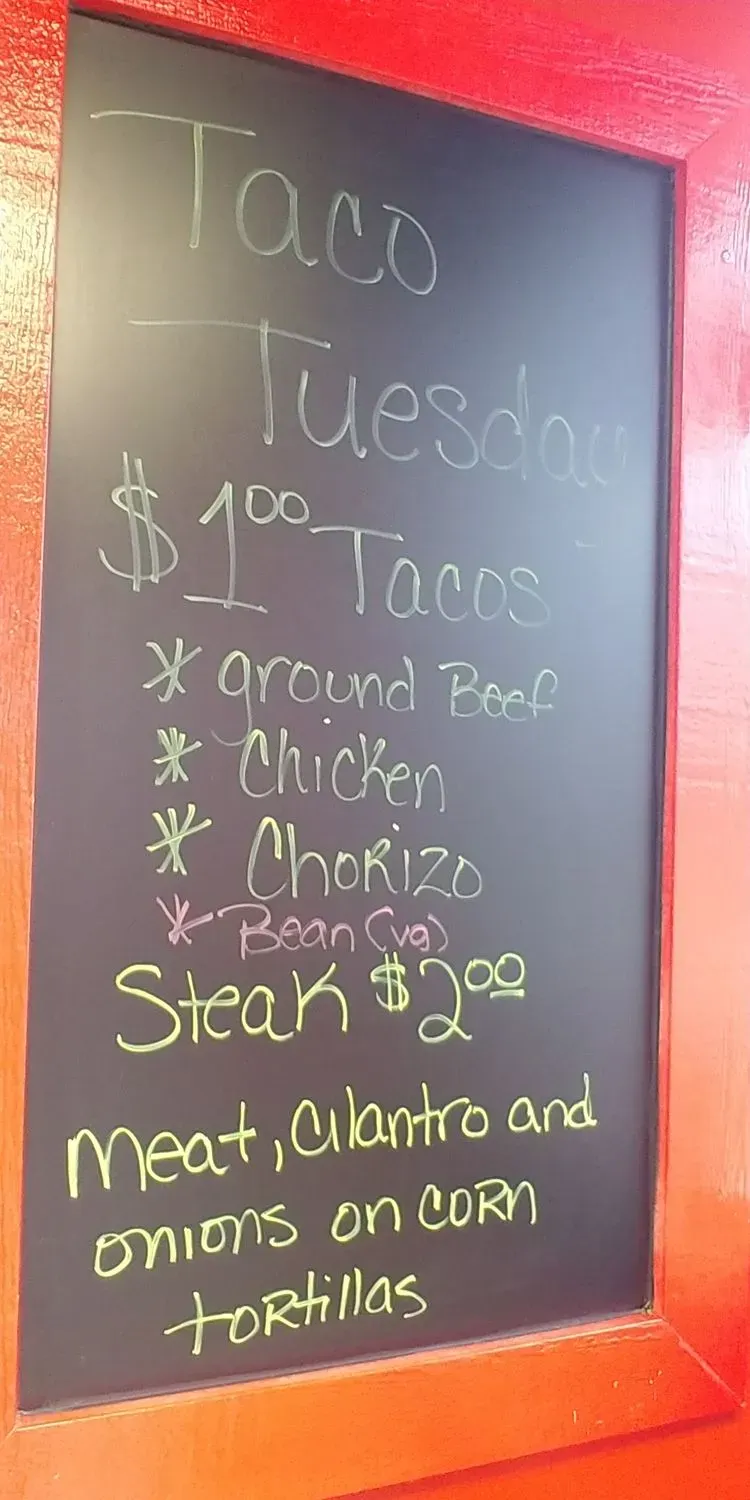 Taco
Tuesday
$1.00 Tacos
* ground Beef
* Chicken
* Chorizo
* Bean (vg)
Steak $2.00
Meat, Cilantro and
onions on corn
tortillas